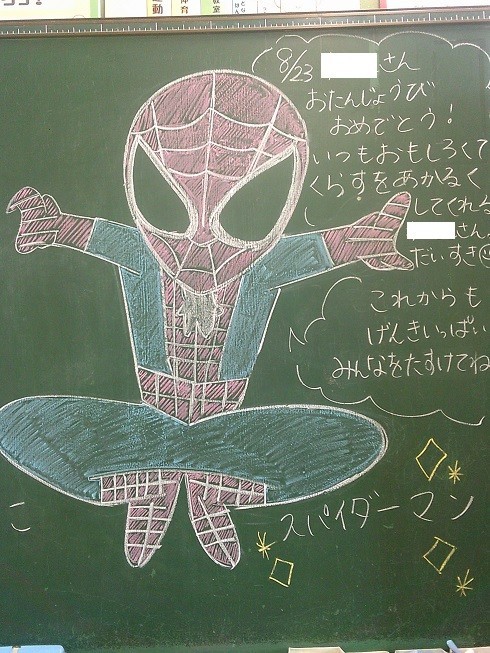 8/23 さん
おたんじょうび
おめでとう!
いつもおもしろくて
くらすをあかるく
してくれる
さん
だいすき
これからも
げんきいっぱい
みんなをたすけてね
スパイダーマン
こ
運動
体育
教室